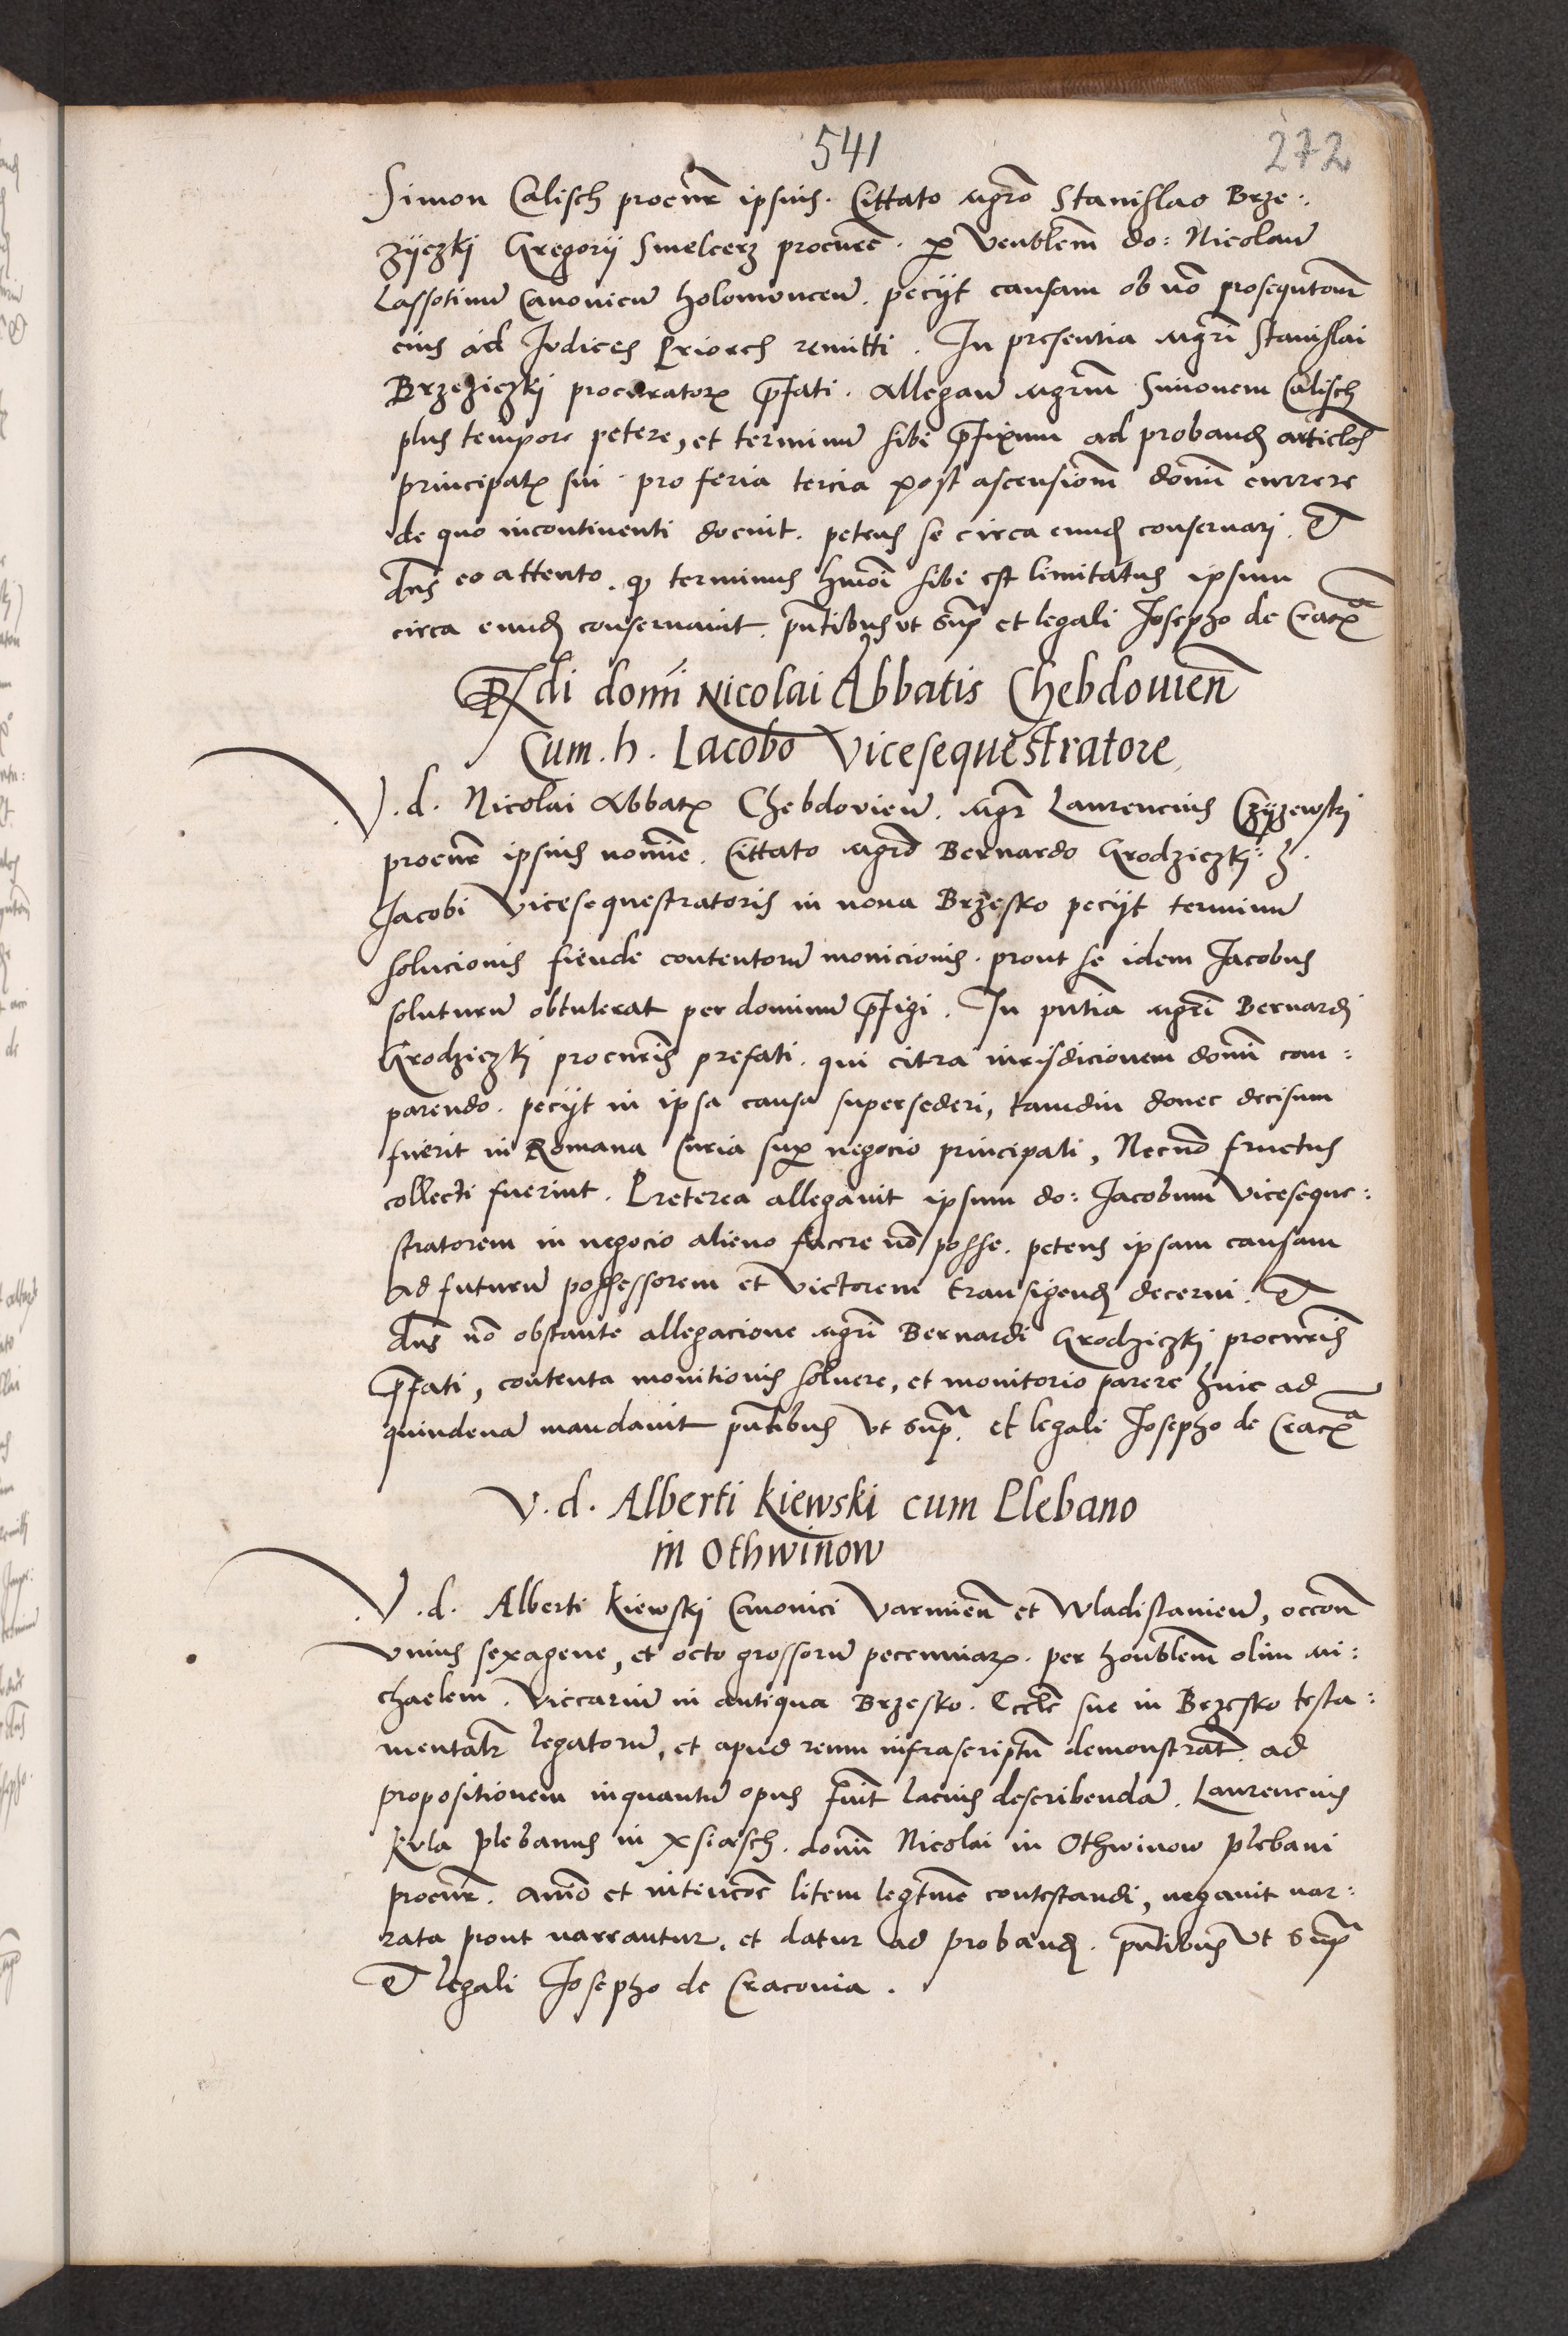 541
272
Simon Calisch procur̄ ipsius. Cittato mgrō Stanislao Brze:
zÿczkj Gregorÿ Smelcerz procurē. per Venblem̄ do: Nicolaū
Lassotinū Canonicū holomoncen̄. pecÿt causam ob nō prosequtōnē
eius ad Judices Priores remitti. In presentia mgrī Stanislai
Brzeziczkj procuratoris p̄fati. allegan̄ mgrum̄ Simonem Calisch
plus tempore petere, et terminū sibi p̄fixum ad proband articlos̄
principalis sui. pro feria tercia post ascensionē domī currere
de quo incontinenti docuit. petens se circa eund conseruarj. Et
dn̄s eo attento. q terminus hmōi sibi est limitatus ipsum
circa eund conseruauit. pn̄tibus vt sup̄ et legali Josepho de Crac
Rdi domī Nicolai Abbatis Chebdouien̄
Cum. h. Iacobo Vicesequestratore
V. d. Nicolai Abbatis Chebdouien̄. mgr̄ Laurencius Czÿzewskj
procur̄ ipsius nomīe. Cittato mgrō Bernardo Grodziczkj: h.
Jacobi Vicesequestratoris in noua Brzesko pecÿt terminū
solucionis fiende contentorū monicionis. prout se idem Jacobus
soluturū obtulerat per dominū p̄figi. In pn̄tia mgrī Bernardj
Grodziczkj procurīs prefati. qui citra iurisdicionem domī com:
parendo. pecÿt in ipsa causa supersederi, tamdiu donec decisum
fuerit in Romana Curia super negocio principali, Necnō fructus
collecti fuerint. Preterea allegauit ipsum do: Jacobum viceseque:
stratorem in negocio alieno facere nō posse. petens ipsam causam
ad futurū possessorem et victorem transigend decerni. Et
dn̄s nō obstante allegacione mgrī Bernardi Grodziczkj procurīs
p̄fati, contenta monitionis soluere, et monitorio parere hinc ad
quindenā mandauit pn̄tibus vt sup̄. et legali Josepho de Crac
V. d. Alberti Kiewski cum Plebano
in Othwinow
V. d. Alberti Kiewskj Canonici Varmien̄ et Wladislauien̄, occōn̄
vnius sexagene, et octo grossorū pecuniar. per honblem̄ olim mi:
chaelem. Viccariū in antiqua Brzesko. Eccle sue in Brzesko testa:
mental̄r legatorū, et apud reum infrascriptū demonstrat̄. ad
propositionem inquantū opus fuīt lacius describendā. Laurencius
Kula plebanus in Xsiasch. domī Nicolai in Othwinow plebani
procur̄. animō et intencōē litem legtīme contestandi, negauit nar:
rata prout narrantur, et datur ad proband. pn̄tibus vt sup̄
Et legali Josepho de Cracouia.